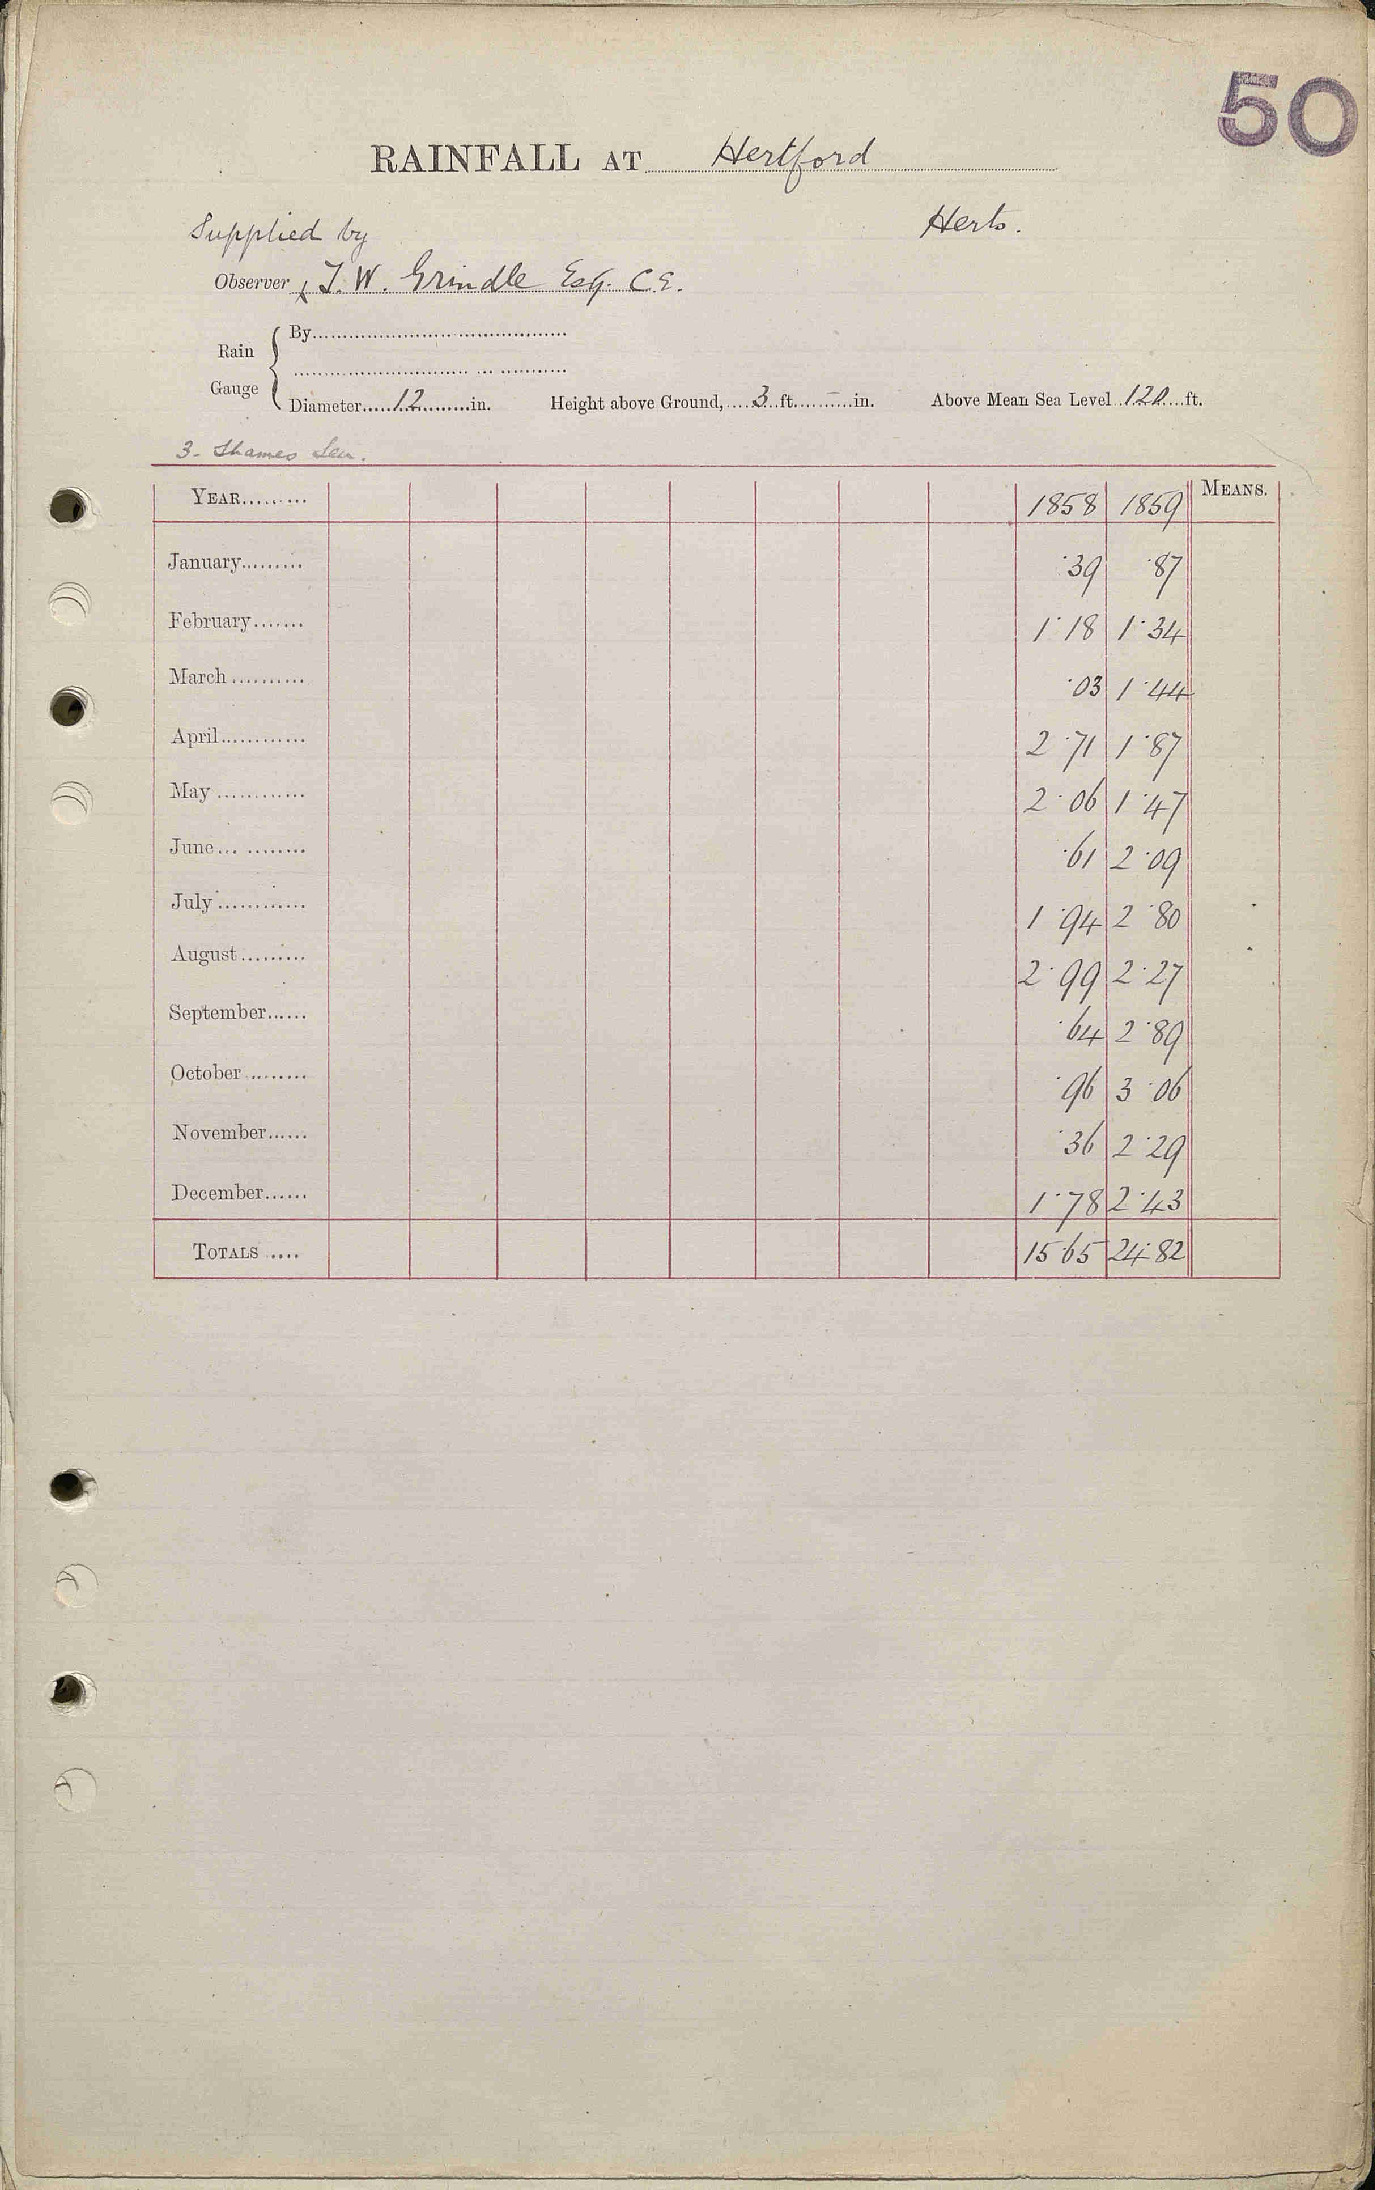 50
RAINFALL AT Hertford
Herts.
Supplied by
Observer J. W. Grindle Esq. C.E.
Rain Gauge
By
Diameter 12 in. Height above Ground, 3 ft. – in. Above Mean Sea Level 120 ft.
3. Thames
YEAR 1858 1859 MEANS.
January ·39 ·87
February 1·18 1·34
March ·03 1·44
April 2·71 1·87
May 2·06 1·47
June ·61 2·09
July 1·94 2·80
August 2·99 2·27
September ·64 2·89
October ·96 3·06
November ·36 2·29
December 1·78 2·43
TOTALS 15·65 24·82